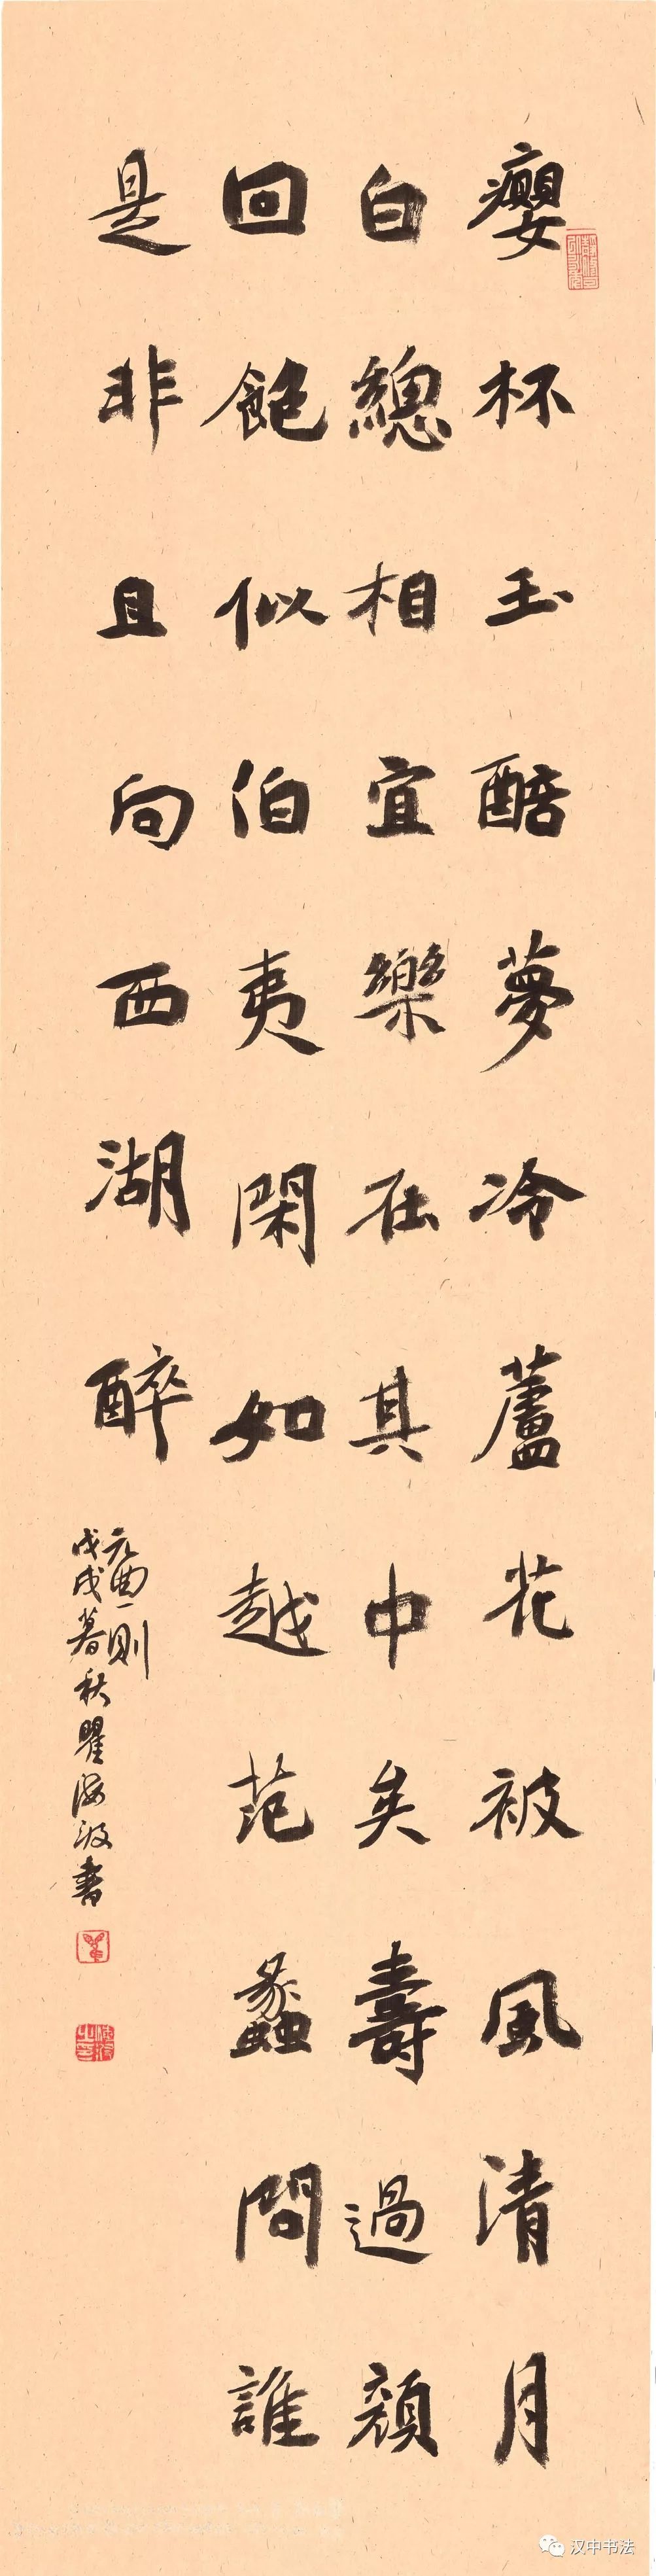 癭杯玉醅夢冷蘆花被風清月
白總相宜樂在其中矣壽過顏
回飽似伯夷閑如越范蠡問誰
是非且向西湖醉
元曲一則
戊戌暮秋瞿海波書
汉中书法